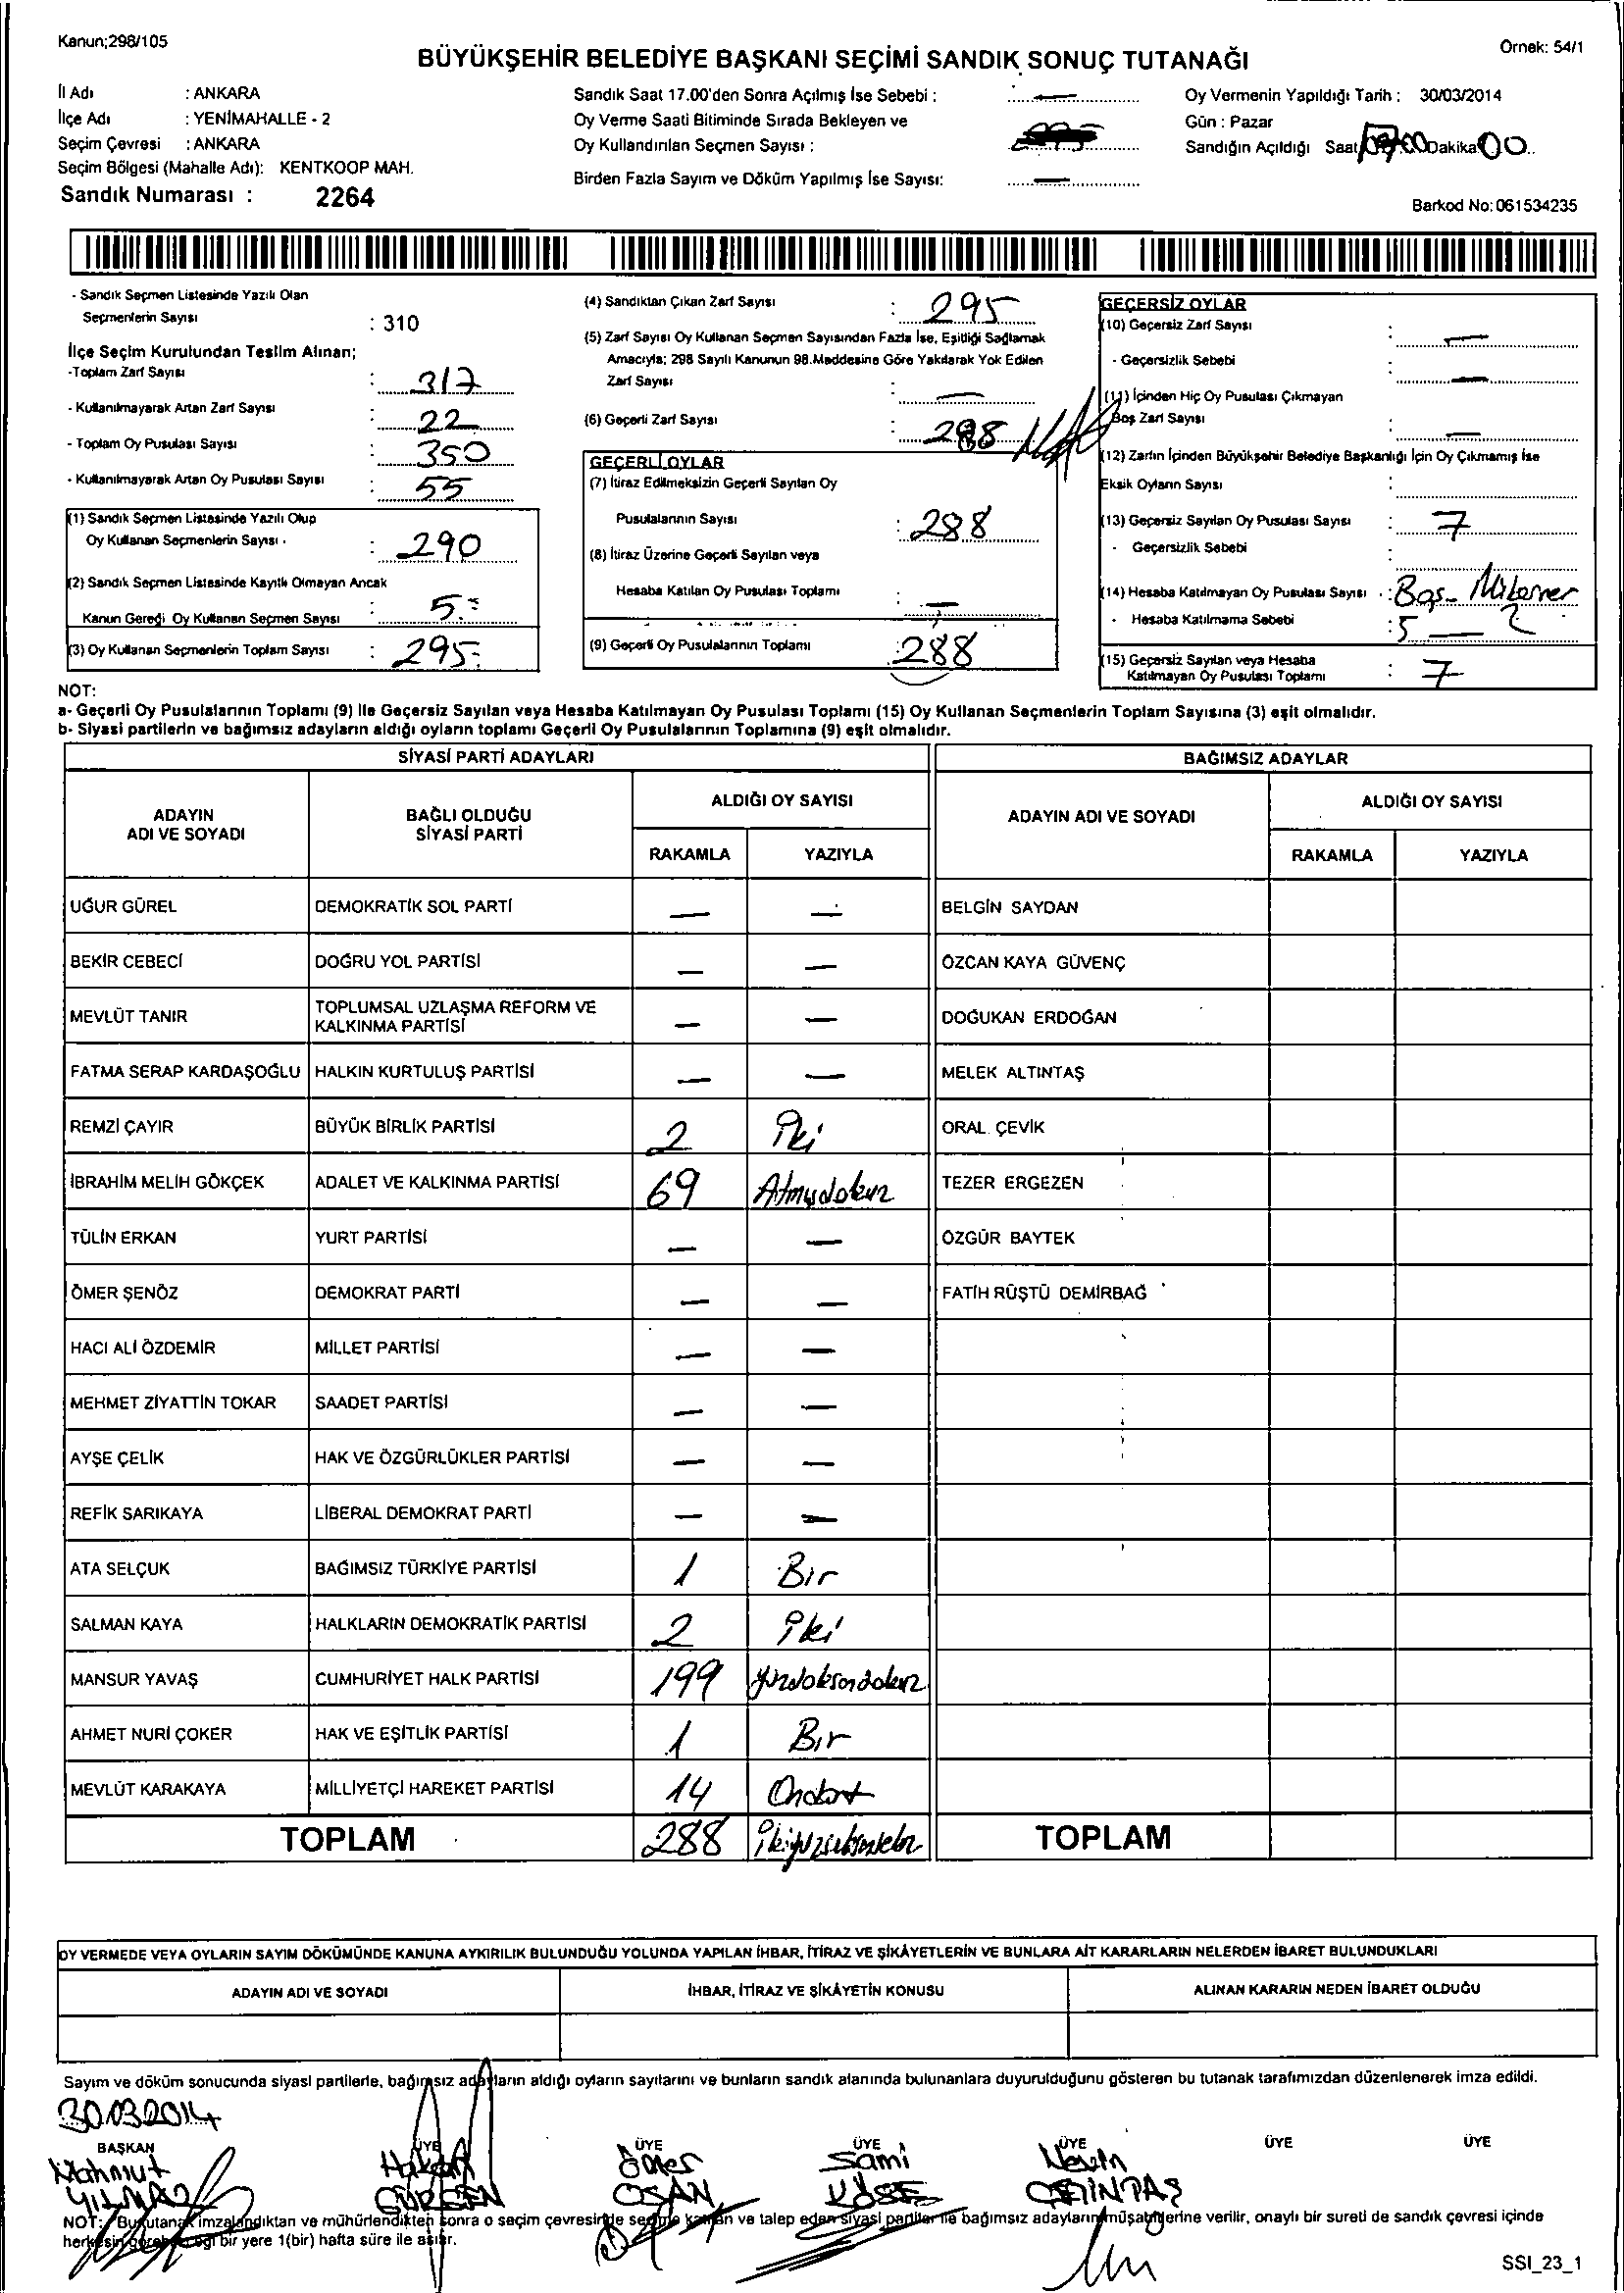 Kanun;298/105
Örnek: 54/1
BÜYÜKŞEHİR BELEDİYE BAŞKANI SEÇİMİ SANDIK SONUÇ TUTANAĞI
İl Adı : ANKARA
İlçe Adı : YENİMAHALLE - 2
Seçim Çevresi : ANKARA
Seçim Bölgesi (Mahalle Adı): KENTKOOP MAH.
Sandık Numarası : 2264
Sandık Saat 17.00'den Sonra Açılmış İse Sebebi : —
Oy Verme Saati Bitiminde Sırada Bekleyen ve
Oy Kullandırılan Seçmen Sayısı :
Birden Fazla Sayım ve Döküm Yapılmış İse Sayısı: —
Oy Vermenin Yapıldığı Tarih : 30/03/2014
Gün : Pazar
Sandığın Açıldığı Saat Dakika 00
Barkod No: 061534235
- Sandık Seçmen Listesinde Yazılı Olan
Seçmenlerin Sayısı : 310
İlçe Seçim Kurulundan Teslim Alınan;
-Toplam Zarf Sayısı : 317
- Kullanılmayarak Artan Zarf Sayısı : 22
- Toplam Oy Pusulası Sayısı : 350
- Kullanılmayarak Artan Oy Pusulası Sayısı : 55
(1) Sandık Seçmen Listesinde Yazılı Olup
Oy Kullanan Seçmenlerin Sayısı : 290
(2) Sandık Seçmen Listesinde Kayıtlı Olmayan Ancak
Kanun Gereği Oy Kullanan Seçmen Sayısı : 5
(3) Oy Kullanan Seçmenlerin Toplam Sayısı : 295
(4) Sandıktan Çıkan Zarf Sayısı : 295
(5) Zarf Sayısı Oy Kullanan Seçmen Sayısından Fazla İse, Eşitliği Sağlamak
Amacıyla; 298 Sayılı Kanunun 98.Maddesine Göre Yakılarak Yok Edilen
Zarf Sayısı : —
(6) Geçerli Zarf Sayısı : 288
GEÇERLİ OYLAR
(7) İtiraz Edilmeksizin Geçerli Sayılan Oy
Pusulalarının Sayısı : 288
(8) İtiraz Üzerine Geçerli Sayılan veya
Hesaba Katılan Oy Pusulası Toplamı : —
(9) Geçerli Oy Pusulalarının Toplamı : 288
GEÇERSİZ OYLAR
(10) Geçersiz Zarf Sayısı : —
- Geçersizlik Sebebi : —
(11) İçinden Hiç Oy Pusulası Çıkmayan
Boş Zarf Sayısı : —
(12) Zarfın İçinden Büyükşehir Belediye Başkanlığı İçin Oy Çıkmamış İse
Eksik Oyların Sayısı :
(13) Geçersiz Sayılan Oy Pusulası Sayısı : 7
- Geçersizlik Sebebi :
(14) Hesaba Katılmayan Oy Pusulası Sayısı : Boş - Mükerrer
- Hesaba Katılmama Sebebi : 5 — 2
(15) Geçersiz Sayılan veya Hesaba
Katılmayan Oy Pusulası Toplamı : 7
NOT:
a- Geçerli Oy Pusulalarının Toplamı (9) İle Geçersiz Sayılan veya Hesaba Katılmayan Oy Pusulası Toplamı (15) Oy Kullanan Seçmenlerin Toplam Sayısına (3) eşit olmalıdır.
b- Siyasi partilerin ve bağımsız adayların aldığı oyların toplamı Geçerli Oy Pusulalarının Toplamına (9) eşit olmalıdır.
SİYASİ PARTİ ADAYLARI
BAĞIMSIZ ADAYLAR
ADAYIN
ADI VE SOYADI
BAĞLI OLDUĞU
SİYASİ PARTİ
ALDIĞI OY SAYISI
RAKAMLA YAZIYLA
ADAYIN ADI VE SOYADI
ALDIĞI OY SAYISI
RAKAMLA YAZIYLA
UĞUR GÜREL DEMOKRATİK SOL PARTİ — — BELGİN SAYDAN
BEKİR CEBECİ DOĞRU YOL PARTİSİ — — ÖZCAN KAYA GÜVENÇ
MEVLÜT TANIR TOPLUMSAL UZLAŞMA REFORM VE
KALKINMA PARTİSİ — — DOĞUKAN ERDOĞAN
FATMA SERAP KARDAŞOĞLU HALKIN KURTULUŞ PARTİSİ — — MELEK ALTINTAŞ
REMZİ ÇAYIR BÜYÜK BİRLİK PARTİSİ 2 İki ORAL ÇEVİK
İBRAHİM MELİH GÖKÇEK ADALET VE KALKINMA PARTİSİ 69 Atmışdokuz TEZER ERGEZEN
TÜLİN ERKAN YURT PARTİSİ — — ÖZGÜR BAYTEK
ÖMER ŞENÖZ DEMOKRAT PARTİ — — FATİH RÜŞTÜ DEMİRBAĞ
HACI ALİ ÖZDEMİR MİLLET PARTİSİ — —
MEHMET ZİYATTİN TOKAR SAADET PARTİSİ — —
AYŞE ÇELİK HAK VE ÖZGÜRLÜKLER PARTİSİ — —
REFİK SARIKAYA LİBERAL DEMOKRAT PARTİ — —
ATA SELÇUK BAĞIMSIZ TÜRKİYE PARTİSİ 1 Bir
SALMAN KAYA HALKLARIN DEMOKRATİK PARTİSİ 2 İki
MANSUR YAVAŞ CUMHURİYET HALK PARTİSİ 199 yüzdoksandokuz
AHMET NURİ ÇOKER HAK VE EŞİTLİK PARTİSİ 1 Bir
MEVLÜT KARAKAYA MİLLİYETÇİ HAREKET PARTİSİ 14 Ondört
TOPLAM 288 İkiyüzseksensekiz TOPLAM
OY VERMEDE VEYA OYLARIN SAYIM DÖKÜMÜNDE KANUNA AYKIRILIK BULUNDUĞU YOLUNDA YAPILAN İHBAR, İTİRAZ VE ŞİKÂYETLERİN VE BUNLARA AİT KARARLARIN NELERDEN İBARET BULUNDUKLARI
ADAYIN ADI VE SOYADI İHBAR, İTİRAZ VE ŞİKÂYETİN KONUSU ALINAN KARARIN NEDEN İBARET OLDUĞU
Sayım ve döküm sonucunda siyasi partilerle, bağımsız adayların aldığı oyların sayılarını ve bunların sandık alanında bulunanlara duyurulduğunu gösteren bu tutanak tarafımızdan düzenlenerek imza edildi.
30.03.2014
BAŞKAN ÜYE ÜYE ÜYE ÜYE ÜYE ÜYE
Mahmut Hakan Öner Sami Nesrin
YILMAZ GÜRGEN OSAN KÖSE ÇETİNTAŞ
NOT: Bu tutanak imzalandıktan ve mühürlendikten sonra o seçim çevresinde seçime katılan ve talep eden siyasi partiler ile bağımsız adayların müşahitlerine verilir, onaylı bir sureti de sandık çevresi içinde
herkesin görebileceği bir yere 1(bir) hafta süre ile asılır.
SSI_23_1